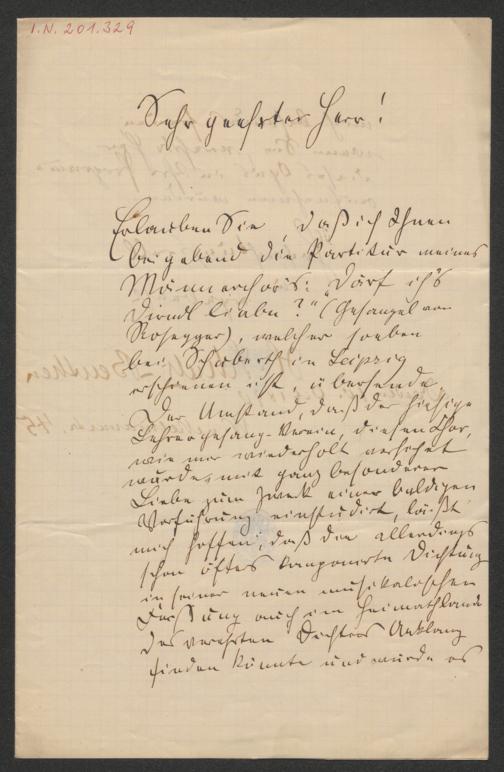 I.N. 201.329
Sehr geehrter Herr!
Erlauben Sie, daß ich Ihnen
beigebend die Partitur meines
Männerchors: "Darf ich's
Dirndl liabn?" (Gesangel von
Rosegger), welcher soeben
bei Schuberth in Leipzig
erschienen ist, übersende.
Der Umstand, daß der hiesige
Lehrergesang-Verein, diesen Chor,
wie mir wiederholt versichert
wurde, mit ganz besonderer
Liebe zum Zweck einer baldigen
Vorführung einstudirt, läßt
mich hoffen, daß die allerdings
schon öftes komponirte Dichtung
in seiner neuen musikalischen
Fassung auch im Heimathlande
des verehrten Dichters Anklang
finden könnte und würde es